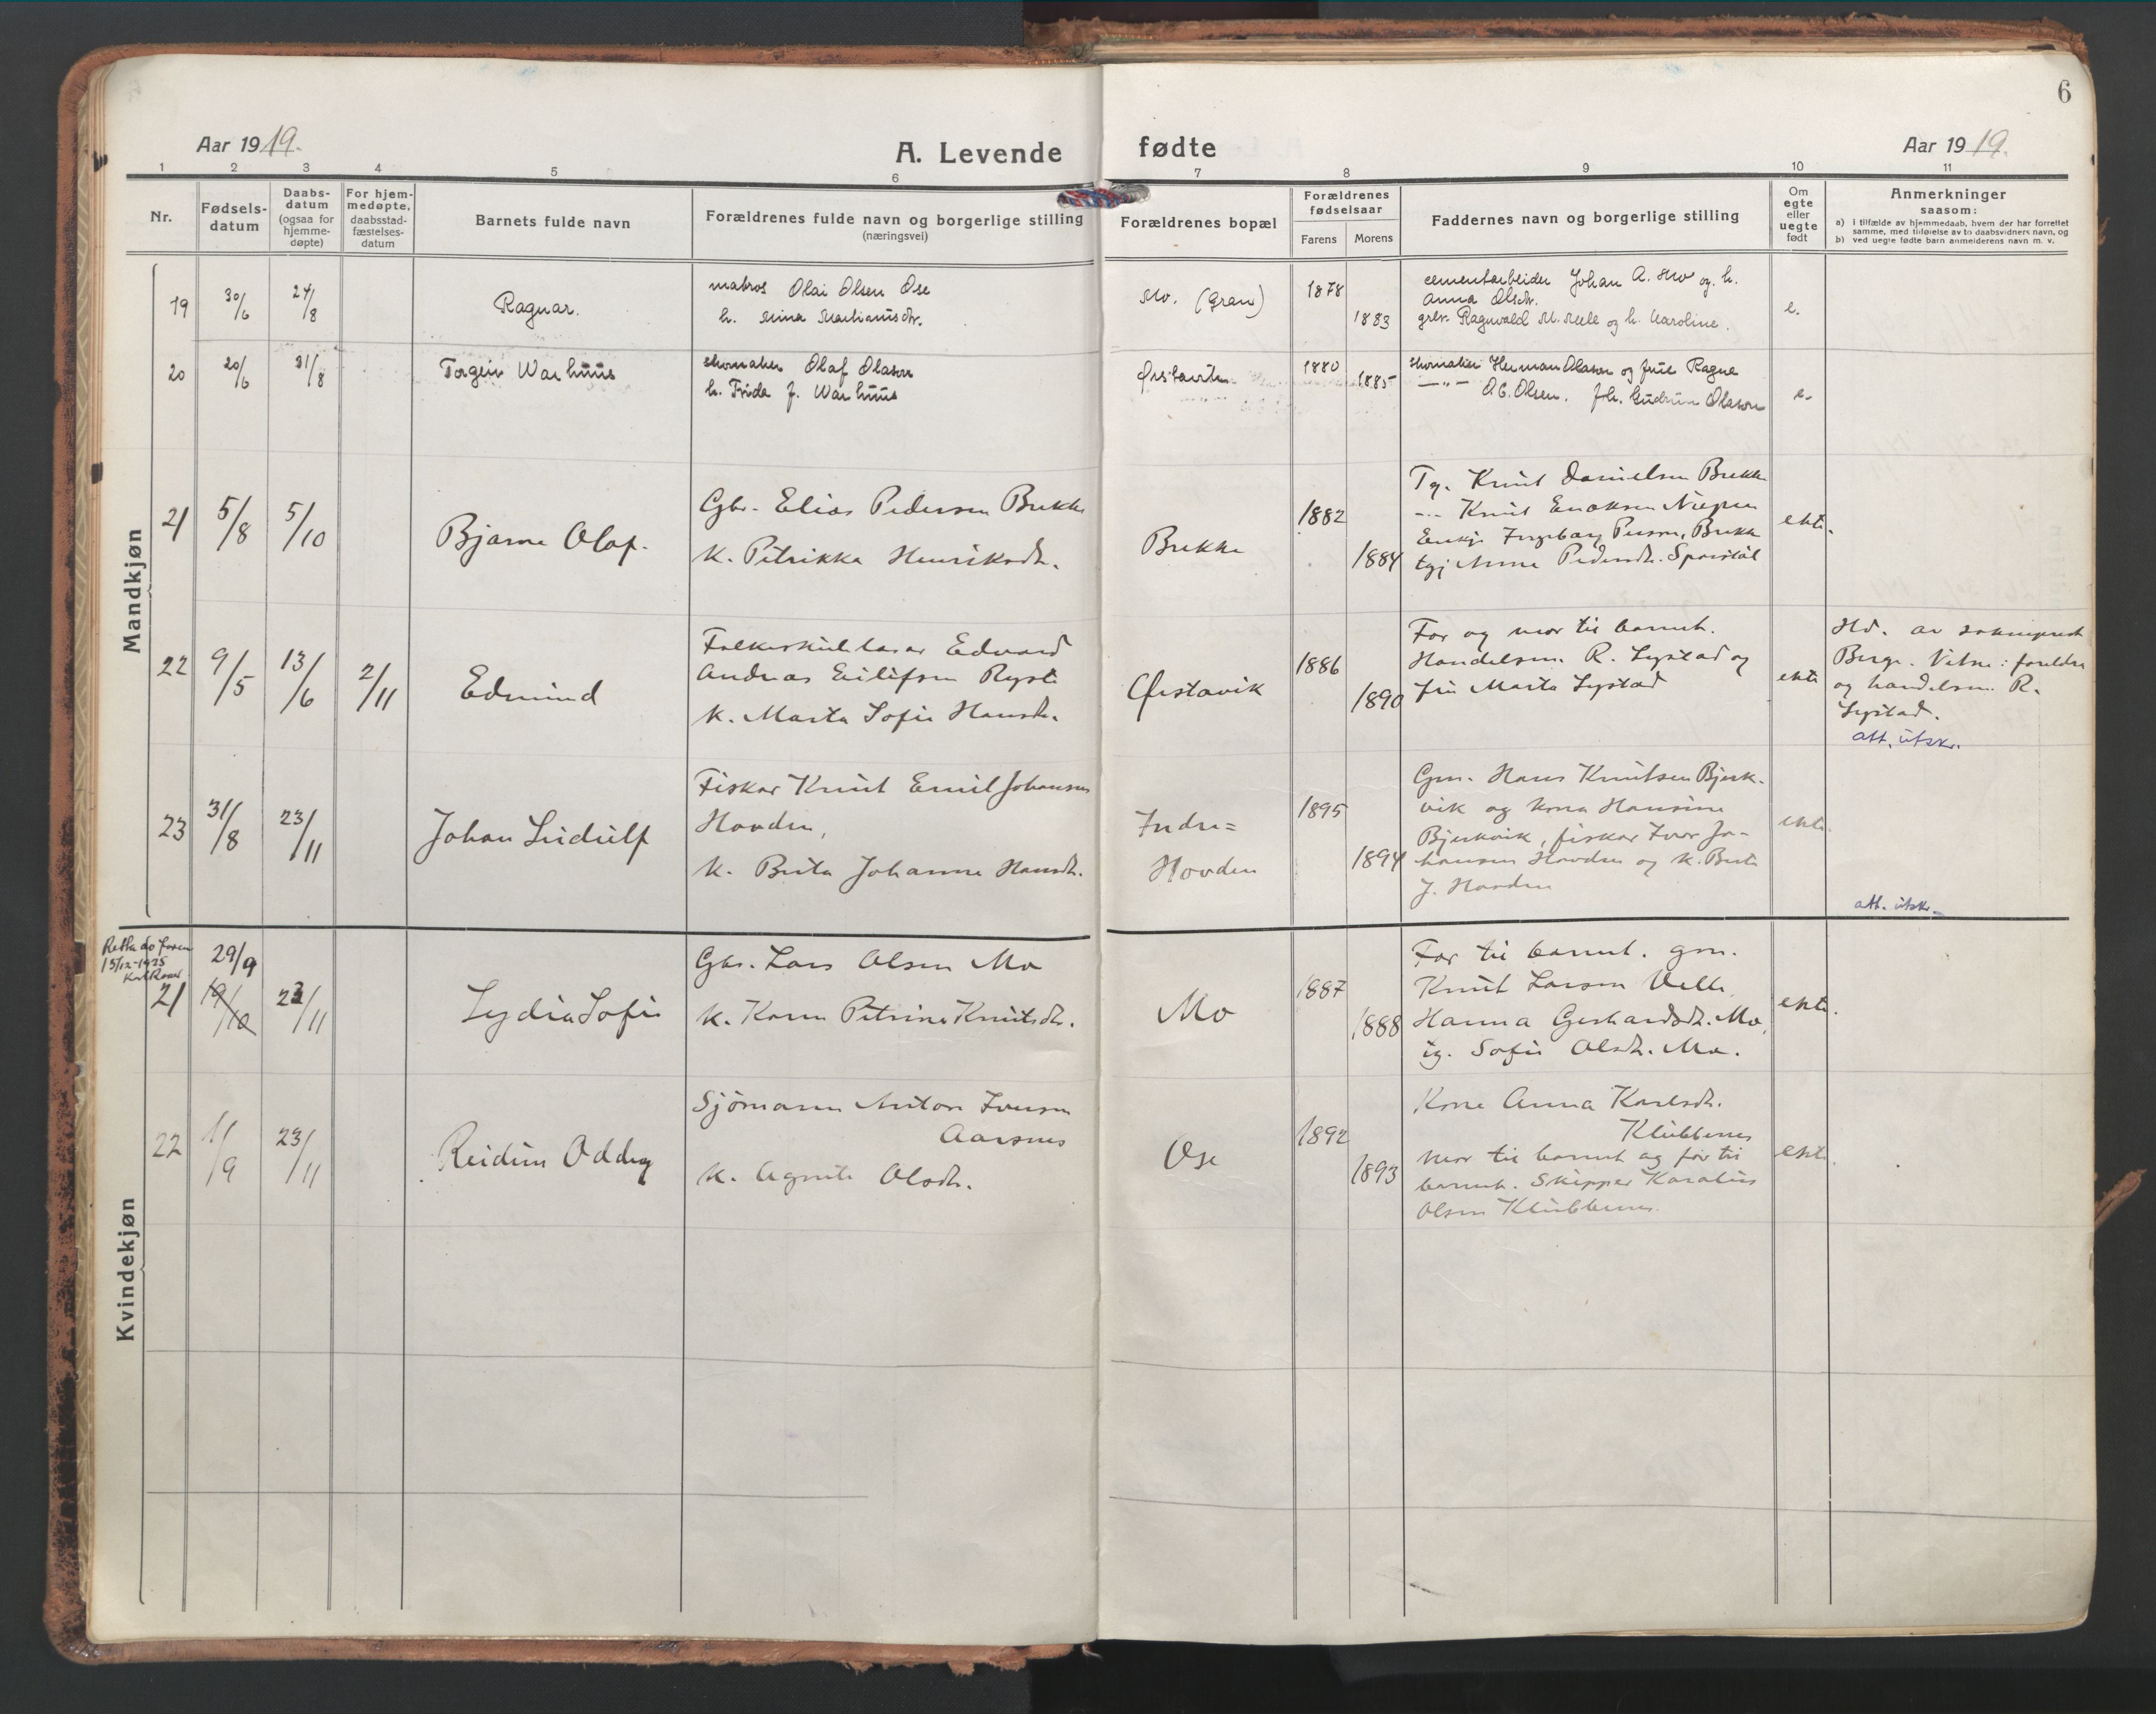 6
Aar 1919.
A. Levende fødte
Aar 1919.
1 2 3 4 5 6 7 8 9 10 11
Nr.
Fødsels-
datum
Daabs-
datum
(ogsaa for
hjemme-
døpte)
For hjem-
medøpte,
daabsstad-
fæstelses-
datum
Barnets fulde navn
Forældrenes fulde navn og borgerlige stilling
(næringsvei)
Forældrenes bopæl
Forældrenes
fødselsaar
Farens Morens
Faddernes navn og borgerlige stilling
Om
egte
eller
uegte
født
Anmerkninger
saasom:
a) i tilfælde av hjemmedaab, hvem der har forrettet
samme, med tilføielse av to daabsvidners navn, og
b) ved uegte fødte barn anmelderens navn m. v.
Mandkjøn
19
30/6
24/8
Ragnar.
matros Olai Olsen Ose
h. Mina Martinusdtr.
Mo. (Gran)
1878
1883
cementarbeider Johan A. Mo og h.
Anna Olsdtr.
grbr. Ragnvald M. Melle og h. Karoline.
e.
20
20/6
31/8
Torgein Warhuus
skomaker Olaf Olason
h. Frida J. Warhuus
Ørstavik
1880
1885
skomaker Herman Olason og frue Ragna
—"— O. C. Olsen. Gudrun Olason
e.
21
5/8
5/10
Bjarne Olaf.
Gbr. Elias Pedersen Brekke
K. Petrikka Henriksdtr.
Brekke
1882
1884
Tg. Knut Danielsen Brekke
-"- Knut Enoksen
Enkje Ingeborg Brekke
tgj Anna Pedersdtr.
ekte.
22
9/5
13/6
2/11
Edmund
Folkeskulelærar Edvard
Andreas Eilifsen Ryste
K. Marta Sofie Hansdtr.
Ørstavik
1886
1890
Far og mor til barnet.
Handelsm. R. Systad og
fru Marta Systad
ekte
Hd. av sokneprest
Berge. Vitne: foreldre
og handelsm. R.
Systad.
att. utskr.
23
31/8
23/11
Johan Ludulf
Fiskar Knut Emil Johansen
Hovden,
K. Berta Johanne Hansdtr.
Indre=
Hovden
1895
1894
Gm. Hans Knutsen Bjerk-
vik og kona Hansine
Bjerkvik, fiskar Ivar Jo-
hansen Hovden og K. Berte
J. Hovden
ekte.
att. utskr.
Kvindekjøn
Retta
15/12-1925
21
29/9
19/10
23/11
Lydia Sofie
Gbr. Lars Olsen Mo
K. Karen Petrine Knutsdtr.
Mo
1887
1888
Far til barnet. gm.
Knut Larsen Velle,
Hanna Gerhardsdtr. Mo,
ug. Sofie Olsdtr. Mo.
ekte.
22
1/9
23/11
Reidun Oddny
Sjømann Anton Iversen
Aarsnes
K. Agnete Olsdtr.
Ose
1892
1893
Kone Anna Karlsdtr.
Klubbenes
Mor til barnet og far til
barnet. Skipper Karolius
Olsen Klubbenes.
ekte.